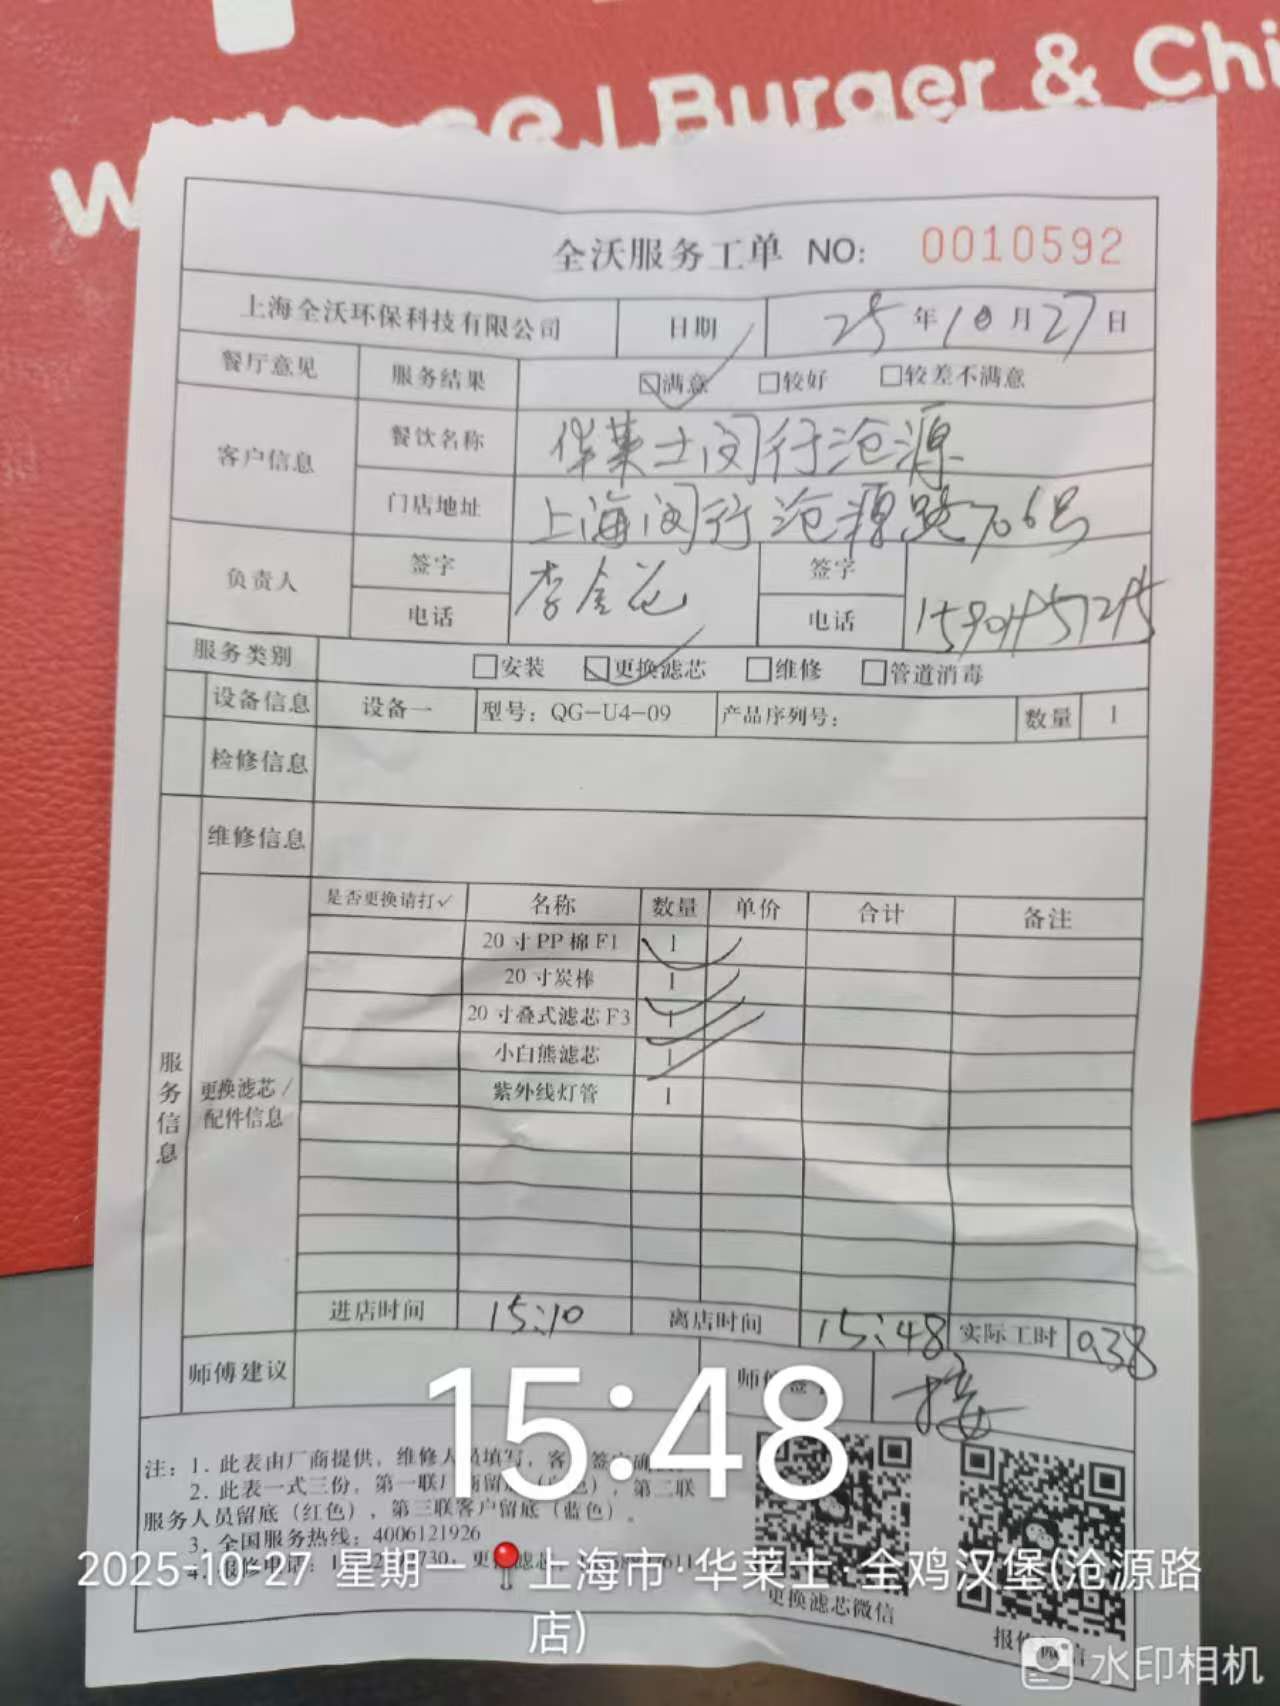 Burger & Chi
全沃服务工单 NO: 0010592
上海全沃环保科技有限公司 日期 25年10月27日
餐厅意见 服务结果 ☑满意 □较好 □较差不满意
客户信息 餐饮名称 华莱士闵行沧源
门店地址 上海闵行沧源路706号
负责人 签字 李金花 签字
电话 电话
服务类别 □安装 ☑更换滤芯 □维修 □管道消毒
设备信息 设备一 型号: QG-U4-09 产品序列号: 数量 1
检修信息
维修信息
服务信息
更换滤芯/配件信息
是否更换请打✓ 名称 数量 单价 合计 备注
20寸PP棉F1 1 ✓
20寸炭棒 1 ✓
20寸叠式滤芯F3 1 ✓
小白熊滤芯 1 ✓
紫外线灯管 1
进店时间 15:10 离店时间 15:48 实际工时 0.38
师傅建议
15:48
注: 1. 此表由厂商提供, 维修人员填写,
2. 此表一式三份, 第一联 第二联
服务人员留底(红色), 第三联客户留底(蓝色)。
3. 全国服务热线: 4006121926
2025-10-27 星期一 上海市·华莱士·全鸡汉堡(沧源路店)
更换滤芯微信
水印相机